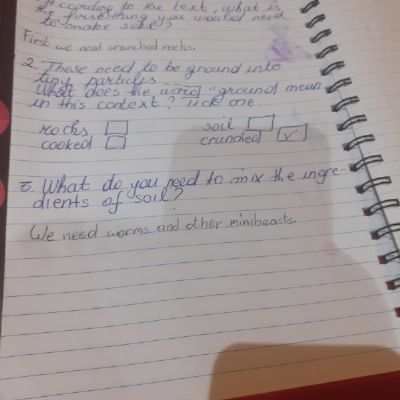 According to the text, what is
the first thing you would need
to make soil?
First we need crunched rocks.
2. These need to be ground into
tiny particles
What does the word "ground mean
in this context? Tick one
rocks
soil
cooked
crunched ✓
3. What do you need to mix the ingre-
dients of soil?
We need worms and other minibeasts.